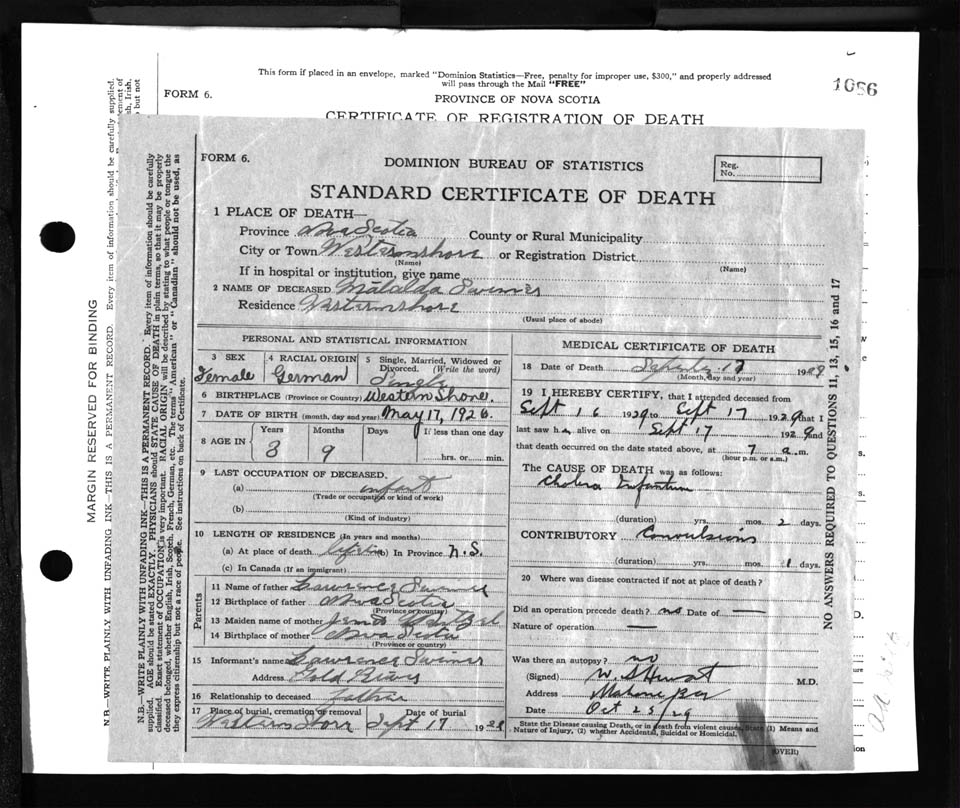 This form if placed in an envelope, marked "Dominion Statistics—Free, penalty for improper use, $300," and properly addressed
will pass through the Mail "FREE"
1086
FORM 6.
PROVINCE OF NOVA SCOTIA
CERTIFICATE OF REGISTRATION OF DEATH
MARGIN RESERVED FOR BINDING
N.B.—WRITE PLAINLY WITH UNFADING INK—THIS IS A PERMANENT RECORD. Every item of information should be carefully supplied.
N.B.—WRITE PLAINLY WITH UNFADING INK—THIS IS A PERMANENT RECORD. Every item of information should be carefully
supplied. AGE should be stated EXACTLY. PHYSICIANS should STATE CAUSE OF DEATH in plain terms, so that it may be properly
classified. Exact statement of OCCUPATION is very important. RACIAL ORIGIN will be described by stating to what people or tongue the
deceased belonged, whether English, Irish, Scotch, French, German, etc. The terms "American" or "Canadian" should not be used, as
they express citizenship but not a race of people. See instructions on back of Certificate.
FORM 6.
DOMINION BUREAU OF STATISTICS
Reg.
No.
STANDARD CERTIFICATE OF DEATH
1 PLACE OF DEATH—
Province Nova Scotia County or Rural Municipality
City or Town Westernshore or Registration District
(Name) (Name)
If in hospital or institution, give name
2 NAME OF DECEASED Matalda Swimer
Residence Westernshore
(Usual place of abode)
PERSONAL AND STATISTICAL INFORMATION
3 SEX 4 RACIAL ORIGIN 5 Single, Married, Widowed or
Divorced. (Write the word)
Female German Single
6 BIRTHPLACE (Province or Country) Western Shore.
7 DATE OF BIRTH (month, day and year) May 17, 1926.
8 AGE IN Years Months Days If less than one day
3 9 hrs. or min.
9 LAST OCCUPATION OF DECEASED.
(a) infant
(Trade or occupation or kind of work)
(b)
(Kind of industry)
10 LENGTH OF RESIDENCE (In years and months)
(a) At place of death (b) In Province N.S.
(c) In Canada (If an immigrant)
Parents
11 Name of father Lawrence
12 Birthplace of father Nova Scotia
(Province or country)
13 Maiden name of mother
14 Birthplace of mother Nova Scotia
(Province or country)
15 Informant's name Lawrence Swimer
Address Gold River
16 Relationship to deceased father
17 Place of burial, cremation or removal Date of burial
Western Shore Sept 17 1929
MEDICAL CERTIFICATE OF DEATH
18 Date of Death September 17 1929
(Month, day and year)
19 I HEREBY CERTIFY, that I attended deceased from
Sept 16 1929 to Sept 17 1929 that I
last saw her alive on Sept 17 1929 and
that death occurred on the date stated above, at 7 a.m.
(hour p.m. or a.m.)
The CAUSE OF DEATH was as follows:
Cholera Infantum
(duration) yrs. mos. 2 days.
CONTRIBUTORY Convulsions
(duration) yrs. mos. 1 days.
20 Where was disease contracted if not at place of death?
Did an operation precede death? no Date of —
Nature of operation —
Was there an autopsy? no
(Signed) M.D.
Address Mahone Bay
Date Oct 25/29
State the Disease causing Death, or in death from violent causes, State (1) Means and
Nature of Injury, (2) whether Accidental, Suicidal or Homicidal.
(OVER)
NO ANSWERS REQUIRED TO QUESTIONS 11, 13, 15, 16 and 17